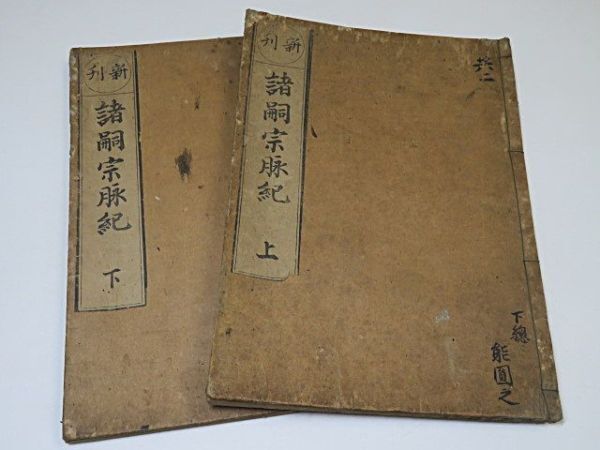 新刊
諸嗣宗脉紀
上
共二
下總
能圓之
新刊
諸嗣宗脉紀
下